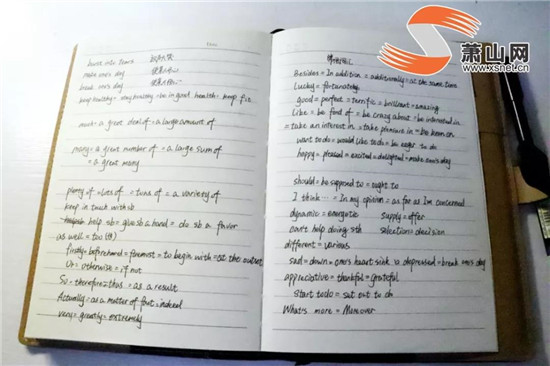 萧山网
www.xsnet.cn
Date:
burst into tears
make one's day
break one's day
keep healthy = stay healthy = be in good health = keep fit
much = a great deal of = a large amount of
many = a great number of = a large sum of
= a great many
plenty of = lots of = tons of = a variety of
keep in touch with sb
help sb = give sb a hand = do sb a favor
as well = too
firstly = beforehand = foremost = to begin with = at the outset
Or = otherwise = if not
So = therefore = thus = as a result
Actually = as a matter of fact = indeed
very = greatly = extremely
Besides = In addition = additionally = at the same time
Lucky = fortunately
good = perfect = terrific = brilliant = amazing
like = be fond of = be crazy about = be interested in
= take an interest in = take pleasure in = be keen on
want to do = would like to do = be eager to do
happy = pleased = excited = delighted = make one's day
should = be supposed to = ought to
I think = In my opinion = as far as I'm concerned
dynamic = energetic supply = offer
can't help doing sth selection = decision
different = various
sad = down = one's heart sink = depressed = break one's day
appreciative = thankful = grateful
start to do = set out to do
What's more = Moreover